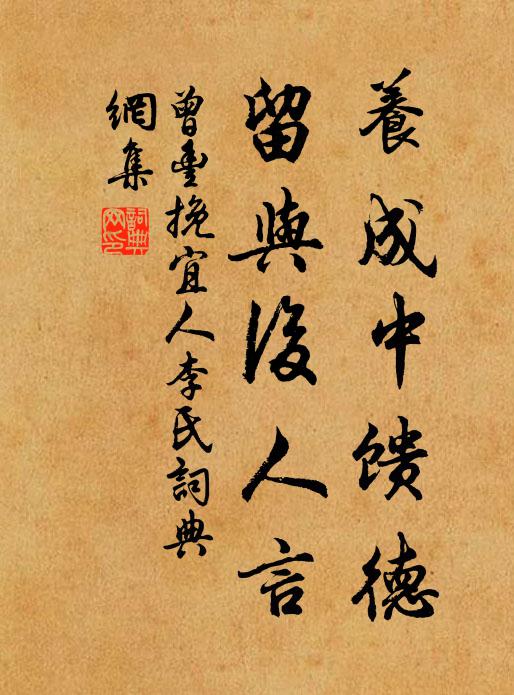 養成中馈德
留與後人言
曾豐挽宜人李氏詞典
網集
詞典网印